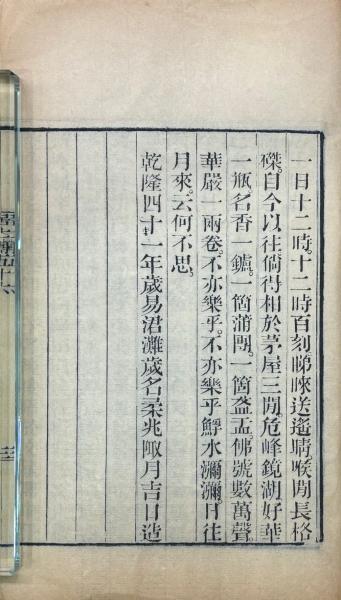 一日十二時。十二時百刻。睇睞送遙睛。喉閒長格
磔。自今以往倘得相於茅屋三閒。危峰鏡湖好華
一瓶。名香一鑪。一箇蒲團。一箇盋盂。佛號數萬聲。
華嚴一兩卷。不亦樂乎。不亦樂乎。鱘水瀰瀰。日往
月來。云何不思。
乾隆四十一年歲易君灘歲名柔兆陬月吉日造